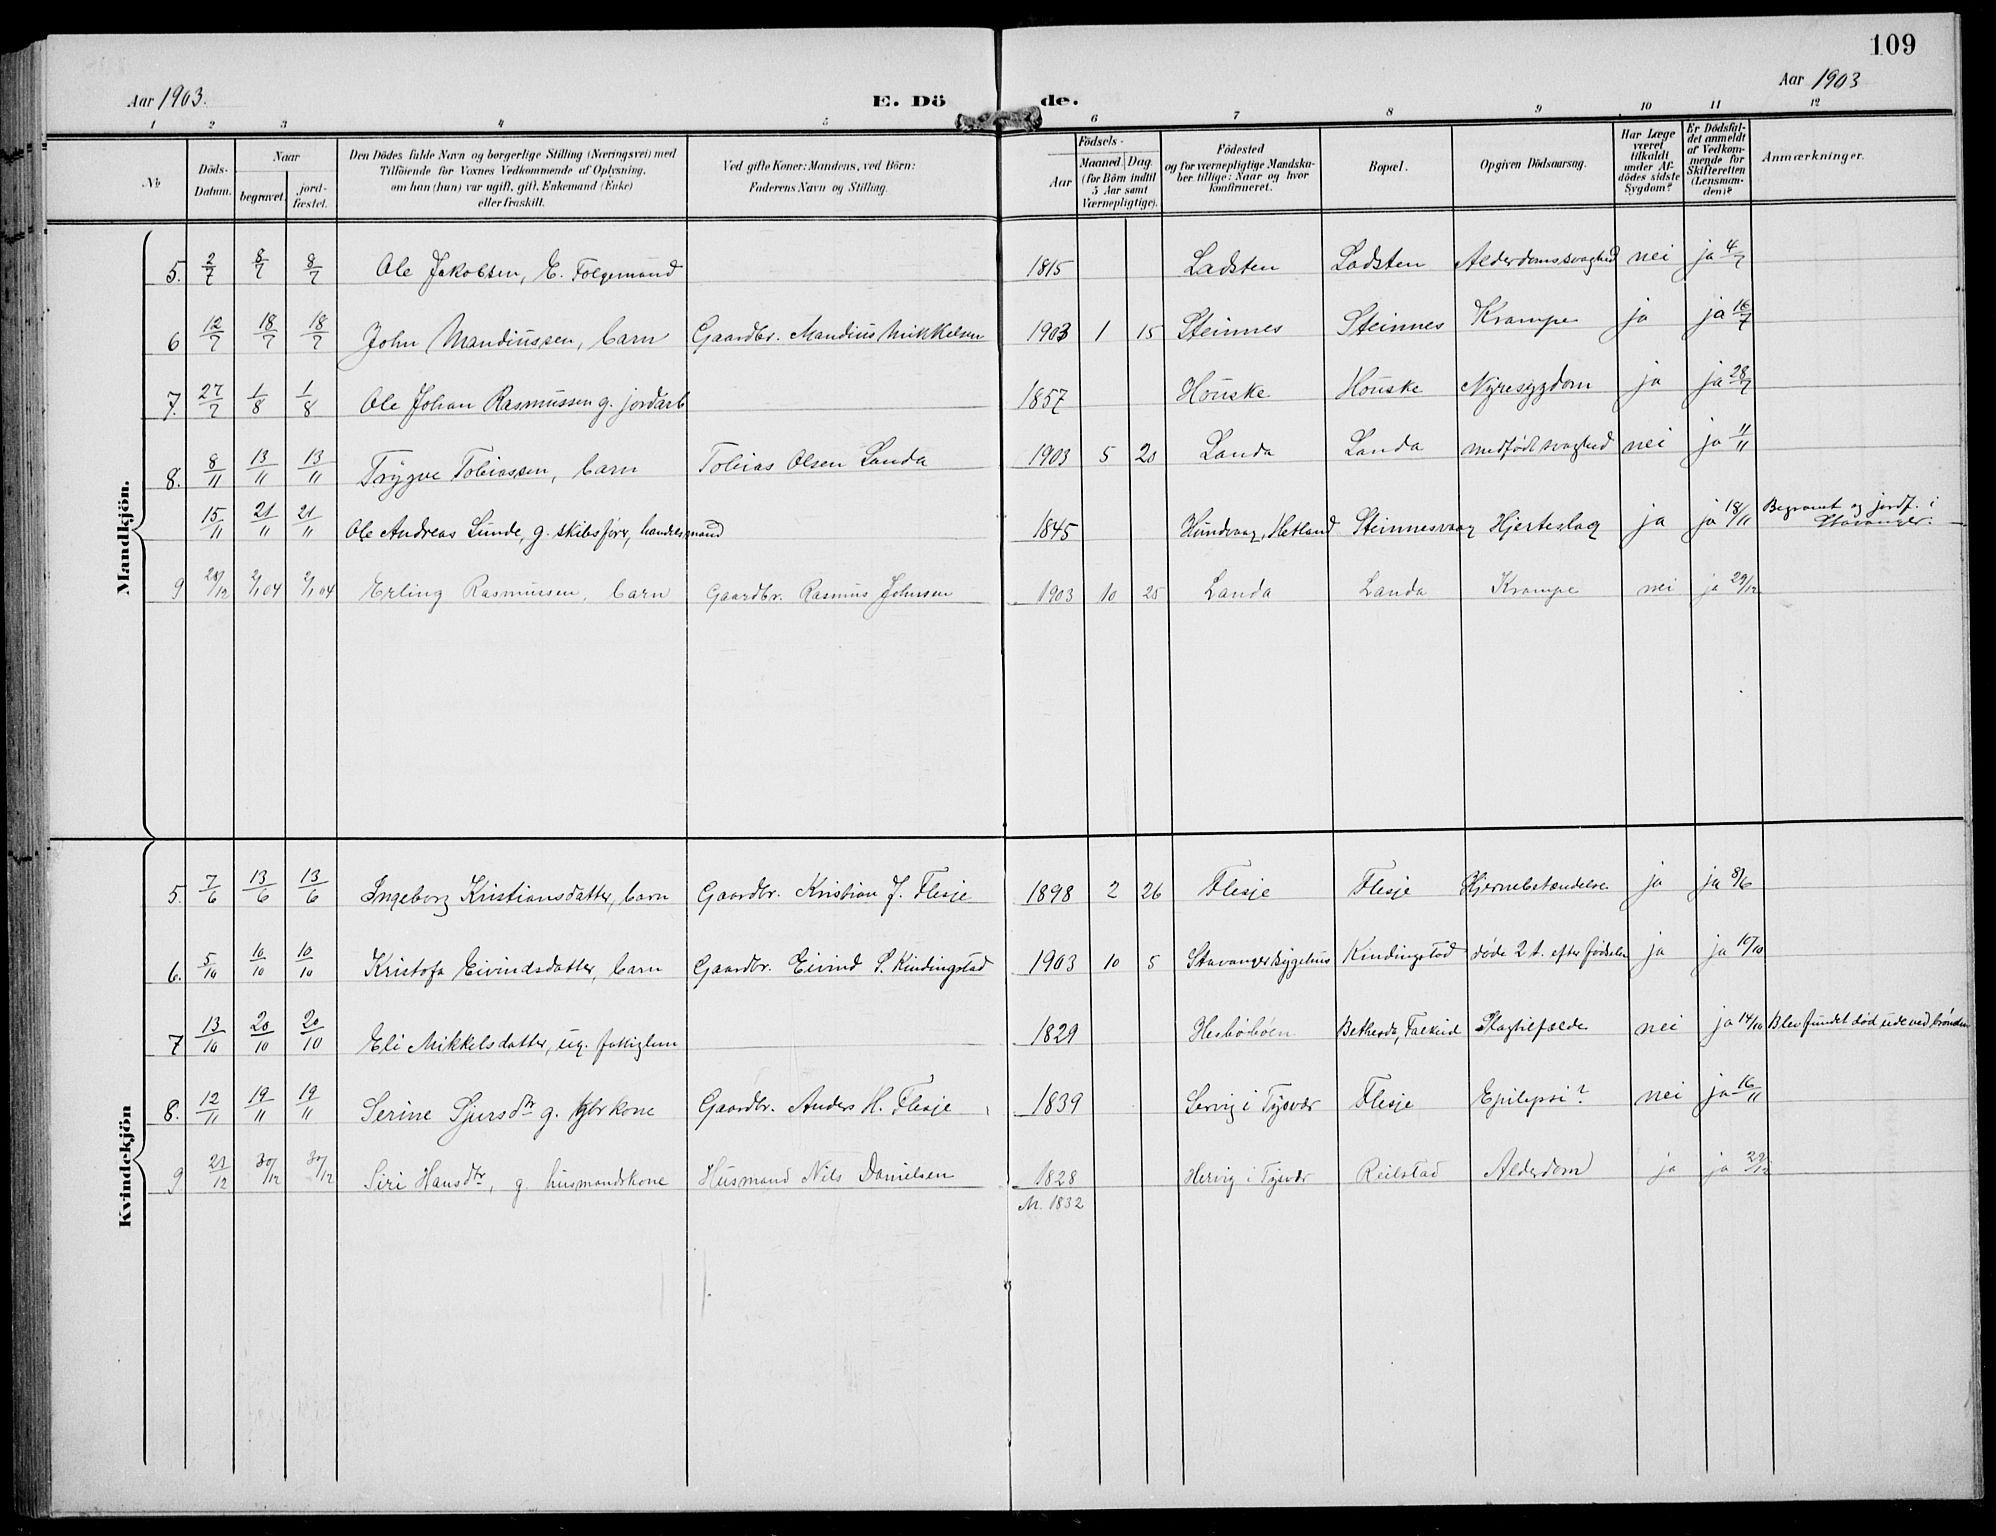 109
Aar 1903.
E. Dö de.
Aar 1903
1 2 3 4 5 6 7 8 9 10 11 12
No
Döds-Datum.
Naar
begravet.
jord-fæstet.
Den Dödes fulde Navn og borgerlige Stilling (Næringsvei) med
Tilföiende for Voxnes Vedkommende af Oplysning,
om han (hun) var ugift, gift, Enkemand (Enke)
eller fraskilt.
Ved gifte Koner: Mandens, ved Börn:
Faderens Navn og Stilling.
Födsels-
Aar
Maaned. Dag.
(for Börn indtil
5 Aar samt
Værnepligtige).
Födested
og for værnepligtige Mandska-
ber tillige: Naar og hvor
konfirmeret.
Bopæl.
Opgiven Dödsaarsag.
Har Læge
været
tilkaldt
under Af-
dödes sidste
Sygdom?
Er Dödsfal-
det anmeldt
af Vedkom-
mende for
Skifteretten
(Lensman-
den)?
Anmærkninger.
Mandkjön.
5. 2/7 8/7 8/7 Ole Jakobsen, E. Folgemand 1815 Ladsten Ladsten Alderdomssvaghed nei ja 4/7
6 12/7 18/7 18/7 John Mandiussen, barn Gaardbr. Mandius Mikkelsen 1903 1 15 Steinnes Steinnes Krampe ja ja 16/7
7. 27/7 1/8 1/8 Ole Johan Rasmussen g. jordarb 1857 Houske Houske Nyresygdom ja ja 28/7
8. 8/11 13/11 13/11 Trygve Tobiassen, barn Tobias Olsen Landa 1903 5 20 Landa Landa medfødt svaghed nei ja 11/11
15/11 21/11 21/11 Ole Andreas Sunde, g. skibsfører, handelsmand 1845 Hundvaag, Hetland Steinnesvaag Hjerteslag ja ja 18/11 Begravet og jordf. i
Stavanger.
9 28/12 2/1 04 2/1 04 Erling Rasmussen, barn Gaardbr. Rasmus Johnsen 1903 10 25 Landa Landa Krampe nei ja 29/12
Kvindekjön
5. 7/6 13/6 13/6 Ingeborg Kristiansdatter, barn Gaardbr. Kristian J. Flesje 1898 2 26 Flesje Flesje Hjernebetændelse ja ja 8/6
6. 5/10 10/10 10/10 Kristofa Eivindsdatter, barn Gaardbr. Eivind S. Kindingstad 1903 10 5 Stavanger Sygehus Kindingstad døde 2 t. efter fødselen ja ja 10/10
7 13/10 20/10 20/10 Eli Mikkelsdatter, ug. fattiglem 1829 Hesbøbøen Falkeid Slagtilfælde nei ja 14/10 Blev fundet død ude ved brønden
8. 12/11 19/11 19/11 Serine Sjursdtr g. gbrkone Gaardbr. Anders H. Flesje 1839 Servig i Tysvær Flesje Epilepsi? nei ja 16/11
9 21/12 30/12 30/12 Siri Hansdtr, g. husmandskone Husmand Nils Danielsen 1828 Hervig i Tysvær Reilstad Alderdom ja ja 29/12
M. 1832